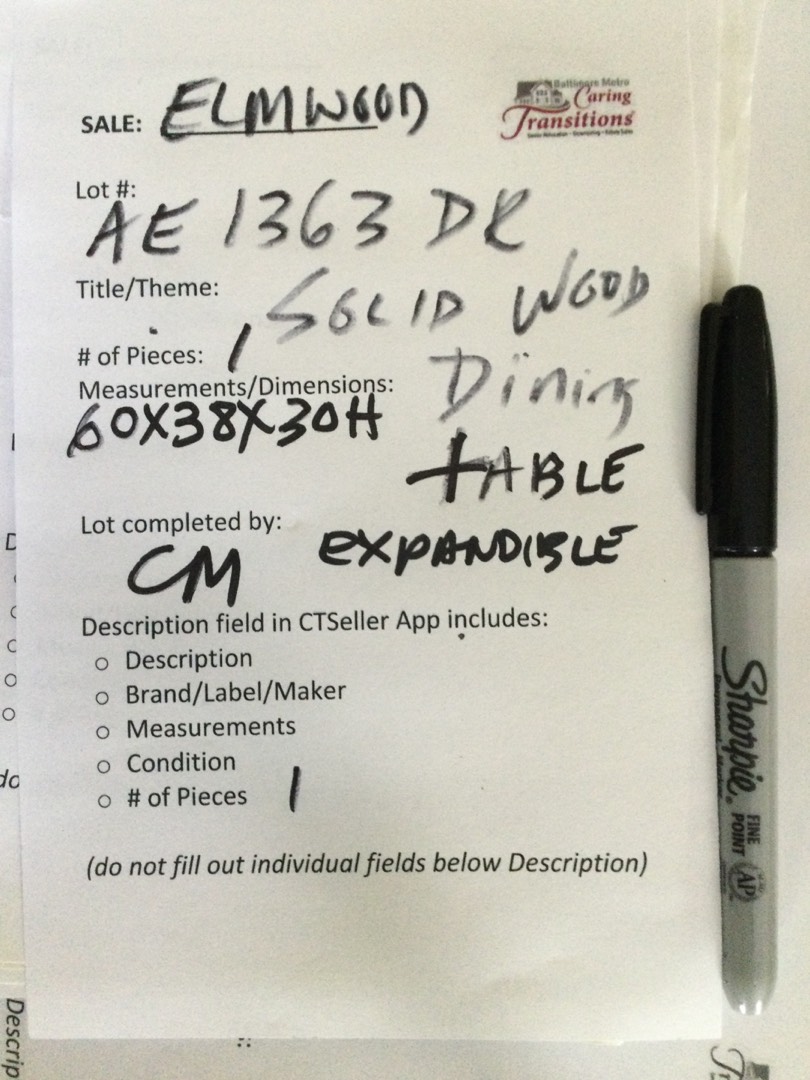 Baltimore Metro
Caring
Transitions
SALE: ELMWOOD
Lot #:
AE 1363 DR
Title/Theme: SOLID WOOD
# of Pieces: 1 Dining
Measurements/Dimensions:
60X38X30H
TABLE
Lot completed by: EXPANDIBLE
CM
Description field in CTSeller App includes:
o Description
o Brand/Label/Maker
o Measurements
o Condition
o # of Pieces 1
(do not fill out individual fields below Description)
Sharpie
FINE
POINT
AP
Descrip